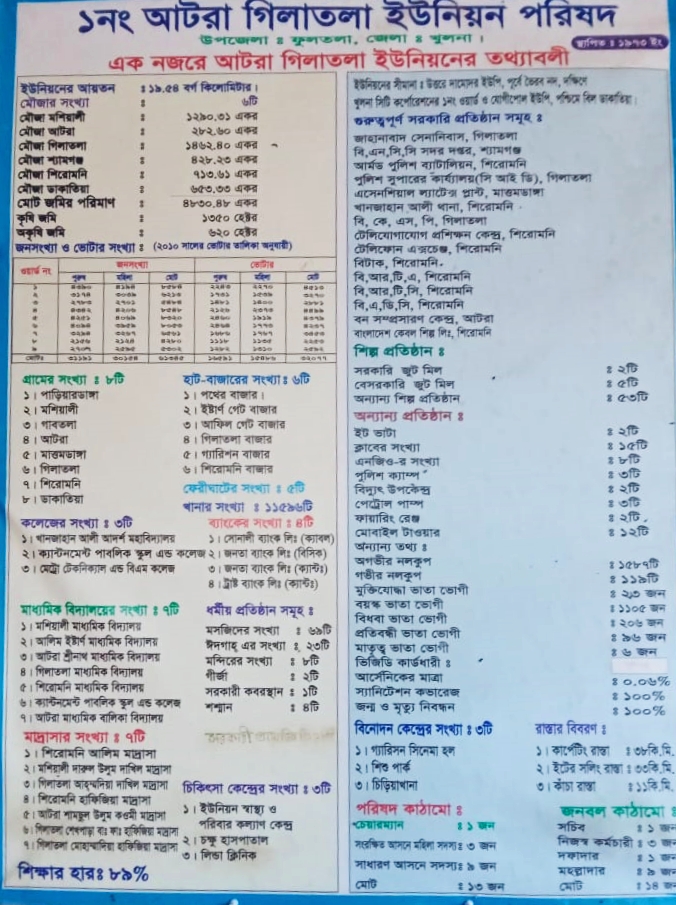 ১নং আটরা গিলাতলা ইউনিয়ন পরিষদ
উপজেলা ঃ ফুলতলা, জেলা ঃ খুলনা ।
স্থাপিত ঃ ১৯৭৩ ইং
এক নজরে আটরা গিলাতলা ইউনিয়নের তথ্যাবলী
ইউনিয়নের আয়তন ঃ ১৯.৫৪ বর্গ কিলোমিটার।
মৌজার সংখ্যা ঃ ৬টি
মৌজা মশিয়ালী ঃ ১২৯০.৩১ একর
মৌজা আটরা ঃ ২৮২.৬০ একর
মৌজা গিলাতলা ঃ ১৪৬২.৪০ একর
মৌজা শ্যামগঞ্জ ঃ ৪২৮.২৩ একর
মৌজা শিরোমনি ঃ ৭১৩.৬১ একর
মৌজা ডাকাতিয়া ঃ ৬৫৩.৩৩ একর
মোট জমির পরিমাণ ঃ ৪৮৩০.৪৮ একর
কৃষি জমি ঃ ১৩৫০ হেক্টর
অকৃষি জমি ঃ ৬২০ হেক্টর
জনসংখ্যা ও ভোটার সংখ্যা ঃ (২০১০ সালের ভোটার তালিকা অনুযায়ী)
ওয়ার্ড নং জনসংখ্যা ভোটার
পুরুষ মহিলা মোট পুরুষ মহিলা মোট
১
২
৩
৪
৫
৬
৭
৮
৯
মোটঃ
গ্রামের সংখ্যা ঃ ৮টি
১। পাড়িয়ারডাঙ্গা
২। মশিয়ালী
৩। গাবতলা
৪। আটরা
৫। মাত্তমডাঙ্গা
৬। গিলাতলা
৭। শিরোমনি
৮। ডাকাতিয়া
হাট-বাজারের সংখ্যা ঃ ৬টি
১। পথের বাজার।
২। ইষ্টার্ণ গেট বাজার
৩। আফিল গেট বাজার
৪। গিলাতলা বাজার
৫। গ্যারিশন বাজার
৬। শিরোমনি বাজার
ফেরীঘাটের সংখ্যা ঃ ৫টি
খানার সংখ্যা ঃ ১১৫৯৬টি
কলেজের সংখ্যা ঃ ৩টি
১। খানজাহান আলী আদর্শ মহাবিদ্যালয়
২। ক্যান্টনমেন্ট পাবলিক স্কুল এন্ড কলেজ
৩। মেট্রো টেকনিক্যাল এন্ড বিএম কলেজ
ব্যাংকের সংখ্যা ঃ ৪টি
১। সোনালী ব্যাংক লিঃ (ক্যাবল)
২। জনতা ব্যাংক লিঃ (বিসিক)
৩। জনতা ব্যাংক লিঃ (ক্যান্টঃ)
৪। ট্রাষ্ট ব্যাংক লিঃ (ক্যান্টঃ)
মাধ্যমিক বিদ্যালয়ের সংখ্যা ঃ ৭টি
১। মশিয়ালী মাধ্যমিক বিদ্যালয়
২। আলিম ইষ্টার্ণ মাধ্যমিক বিদ্যালয়
৩। আটরা শ্রীনাথ মাধ্যমিক বিদ্যালয়
৪। গিলাতলা মাধ্যমিক বিদ্যালয়
৫। শিরোমনি মাধ্যমিক বিদ্যালয়
৬। ক্যান্টনমেন্ট পাবলিক স্কুল এন্ড কলেজ
৭। আটরা মাধ্যমিক বালিকা বিদ্যালয়
ধর্মীয় প্রতিষ্ঠান সমূহ ঃ
মসজিদের সংখ্যা ঃ ৬৯টি
ঈদগাহ্ এর সংখ্যা ঃ ২৩টি
মন্দিরের সংখ্যা ঃ ৮টি
গীর্জা ঃ ২টি
সরকারী কবরস্থান ঃ ১টি
শশ্মান ঃ ৪টি
মাদ্রাসার সংখ্যা ঃ ৭টি
১। শিরোমনি আলিম মাদ্রাসা
২। মশিয়ালী দারুল উলুম দাখিল মাদ্রাসা
৩। গিলাতলা আহম্মদিয়া দাখিল মাদ্রাসা
৪। শিরোমনি হাফিজিয়া মাদ্রাসা
৫। আটরা শামছুল উলুম কওমী মাদ্রাসা
৬। গিলাতলা শেখপাড়া বাঃ ফাঃ হাফিজিয়া মাদ্রাসা
৭। গিলাতলা মোহাম্মাদিয়া হাফিজিয়া মাদ্রাসা
চিকিৎসা কেন্দ্রের সংখ্যা ঃ ৩টি
১। ইউনিয়ন স্বাস্থ্য ও
পরিবার কল্যাণ কেন্দ্র
২। চক্ষু হাসপাতাল
৩। লিন্ডা ক্লিনিক
শিক্ষার হারঃ ৮৯%
ইউনিয়নের সীমানা ঃ উত্তরে দামোদর ইউপি, পূর্বে ভৈরব নদ, দক্ষিণে
খুলনা সিটি কর্পোরেশনের ১নং ওয়ার্ড ও যোগীপোল ইউপি, পশ্চিমে বিল ডাকাতিয়া।
গুরুত্বপূর্ণ সরকারি প্রতিষ্ঠান সমূহ ঃ
জাহানাবাদ সেনানিবাস, গিলাতলা
বি,এন,সি,সি সদর দপ্তর, শ্যামগঞ্জ
আর্মড পুলিশ ব্যাটালিয়ন, শিরোমনি
পুলিশ সুপারের কার্য্যালয়(সি আই ডি), গিলাতলা
এসেনশিয়াল ল্যাটেক্স প্লান্ট, মাত্তমডাঙ্গা
খানজাহান আলী থানা, শিরোমনি
বি, কে, এস, পি, গিলাতলা
টেলিযোগাযোগ প্রশিক্ষন কেন্দ্র, শিরোমনি
টেলিফোন এক্সচেঞ্জ, শিরোমনি
বিটাক, শিরোমনি
বি,আর,টি,এ, শিরোমনি
বি,আর,টি,সি, শিরোমনি
বি,এ,ডি,সি, শিরোমনি
বন সম্প্রসারণ কেন্দ্র, আটরা
বাংলাদেশ কেবল শিল্প লিঃ, শিরোমনি
শিল্প প্রতিষ্ঠান ঃ
সরকারি জুট মিল ঃ ২টি
বেসরকারি জুট মিল ঃ ৫টি
অন্যান্য শিল্প প্রতিষ্ঠান ঃ ৫৩টি
অন্যান্য প্রতিষ্ঠান ঃ
ইট ভাটা ঃ ২টি
ক্লাবের সংখ্যা ঃ ১৫টি
এনজিও-র সংখ্যা ঃ ৮টি
পুলিশ ক্যাম্প ঃ ৩টি
বিদ্যুৎ উপকেন্দ্র ঃ ২টি
পেট্রোল পাম্প ঃ ৩টি
ফায়ারিং রেঞ্জ ঃ ২টি
মোবাইল টাওয়ার ঃ ১২টি
অন্যান্য তথ্য ঃ
অগভীর নলকূপ ঃ ১৫৮৭টি
গভীর নলকূপ ঃ ১১৯টি
মুক্তিযোদ্ধা ভাতা ভোগী ঃ ২৩ জন
বয়স্ক ভাতা ভোগী ঃ ১১০৫ জন
বিধবা ভাতা ভোগী ঃ ২০৬ জন
প্রতিবন্ধী ভাতা ভোগী ঃ ৯৬ জন
মাতৃত্ব ভাতা ভোগী ঃ ৬ জন
ভিজিডি কার্ডধারী ঃ
আর্সেনিকের মাত্রা ঃ ০.০৬%
স্যানিটেশন কভারেজ ঃ ১০০%
জন্ম ও মৃত্যু নিবন্ধন ঃ ১০০%
বিনোদন কেন্দ্রের সংখ্যা ঃ ৩টি
১। গ্যারিসন সিনেমা হল
২। শিশু পার্ক
৩। চিড়িয়াখানা
রাস্তার বিবরণ ঃ
১। কার্পেটিং রাস্তা ঃ ৩৮কি,মি.
২। ইটের সলিং রাস্তা ঃ ৩৩কি,মি.
৩। কাঁচা রাস্তা ঃ ১১কি,মি.
পরিষদ কাঠামো ঃ
চেয়ারম্যান ঃ ১ জন
সংরক্ষিত আসনে মহিলা সদস্যঃ ৩ জন
সাধারণ আসনে সদস্যঃ ৯ জন
মোট ঃ ১৩ জন
জনবল কাঠামো ঃ
সচিব ঃ ১ জন
নিজস্ব কর্মচারী ঃ ৩ জন
দফাদার ঃ ১ জন
মহল্লাদার ঃ ৯ জন
মোট ঃ ১৪ জন